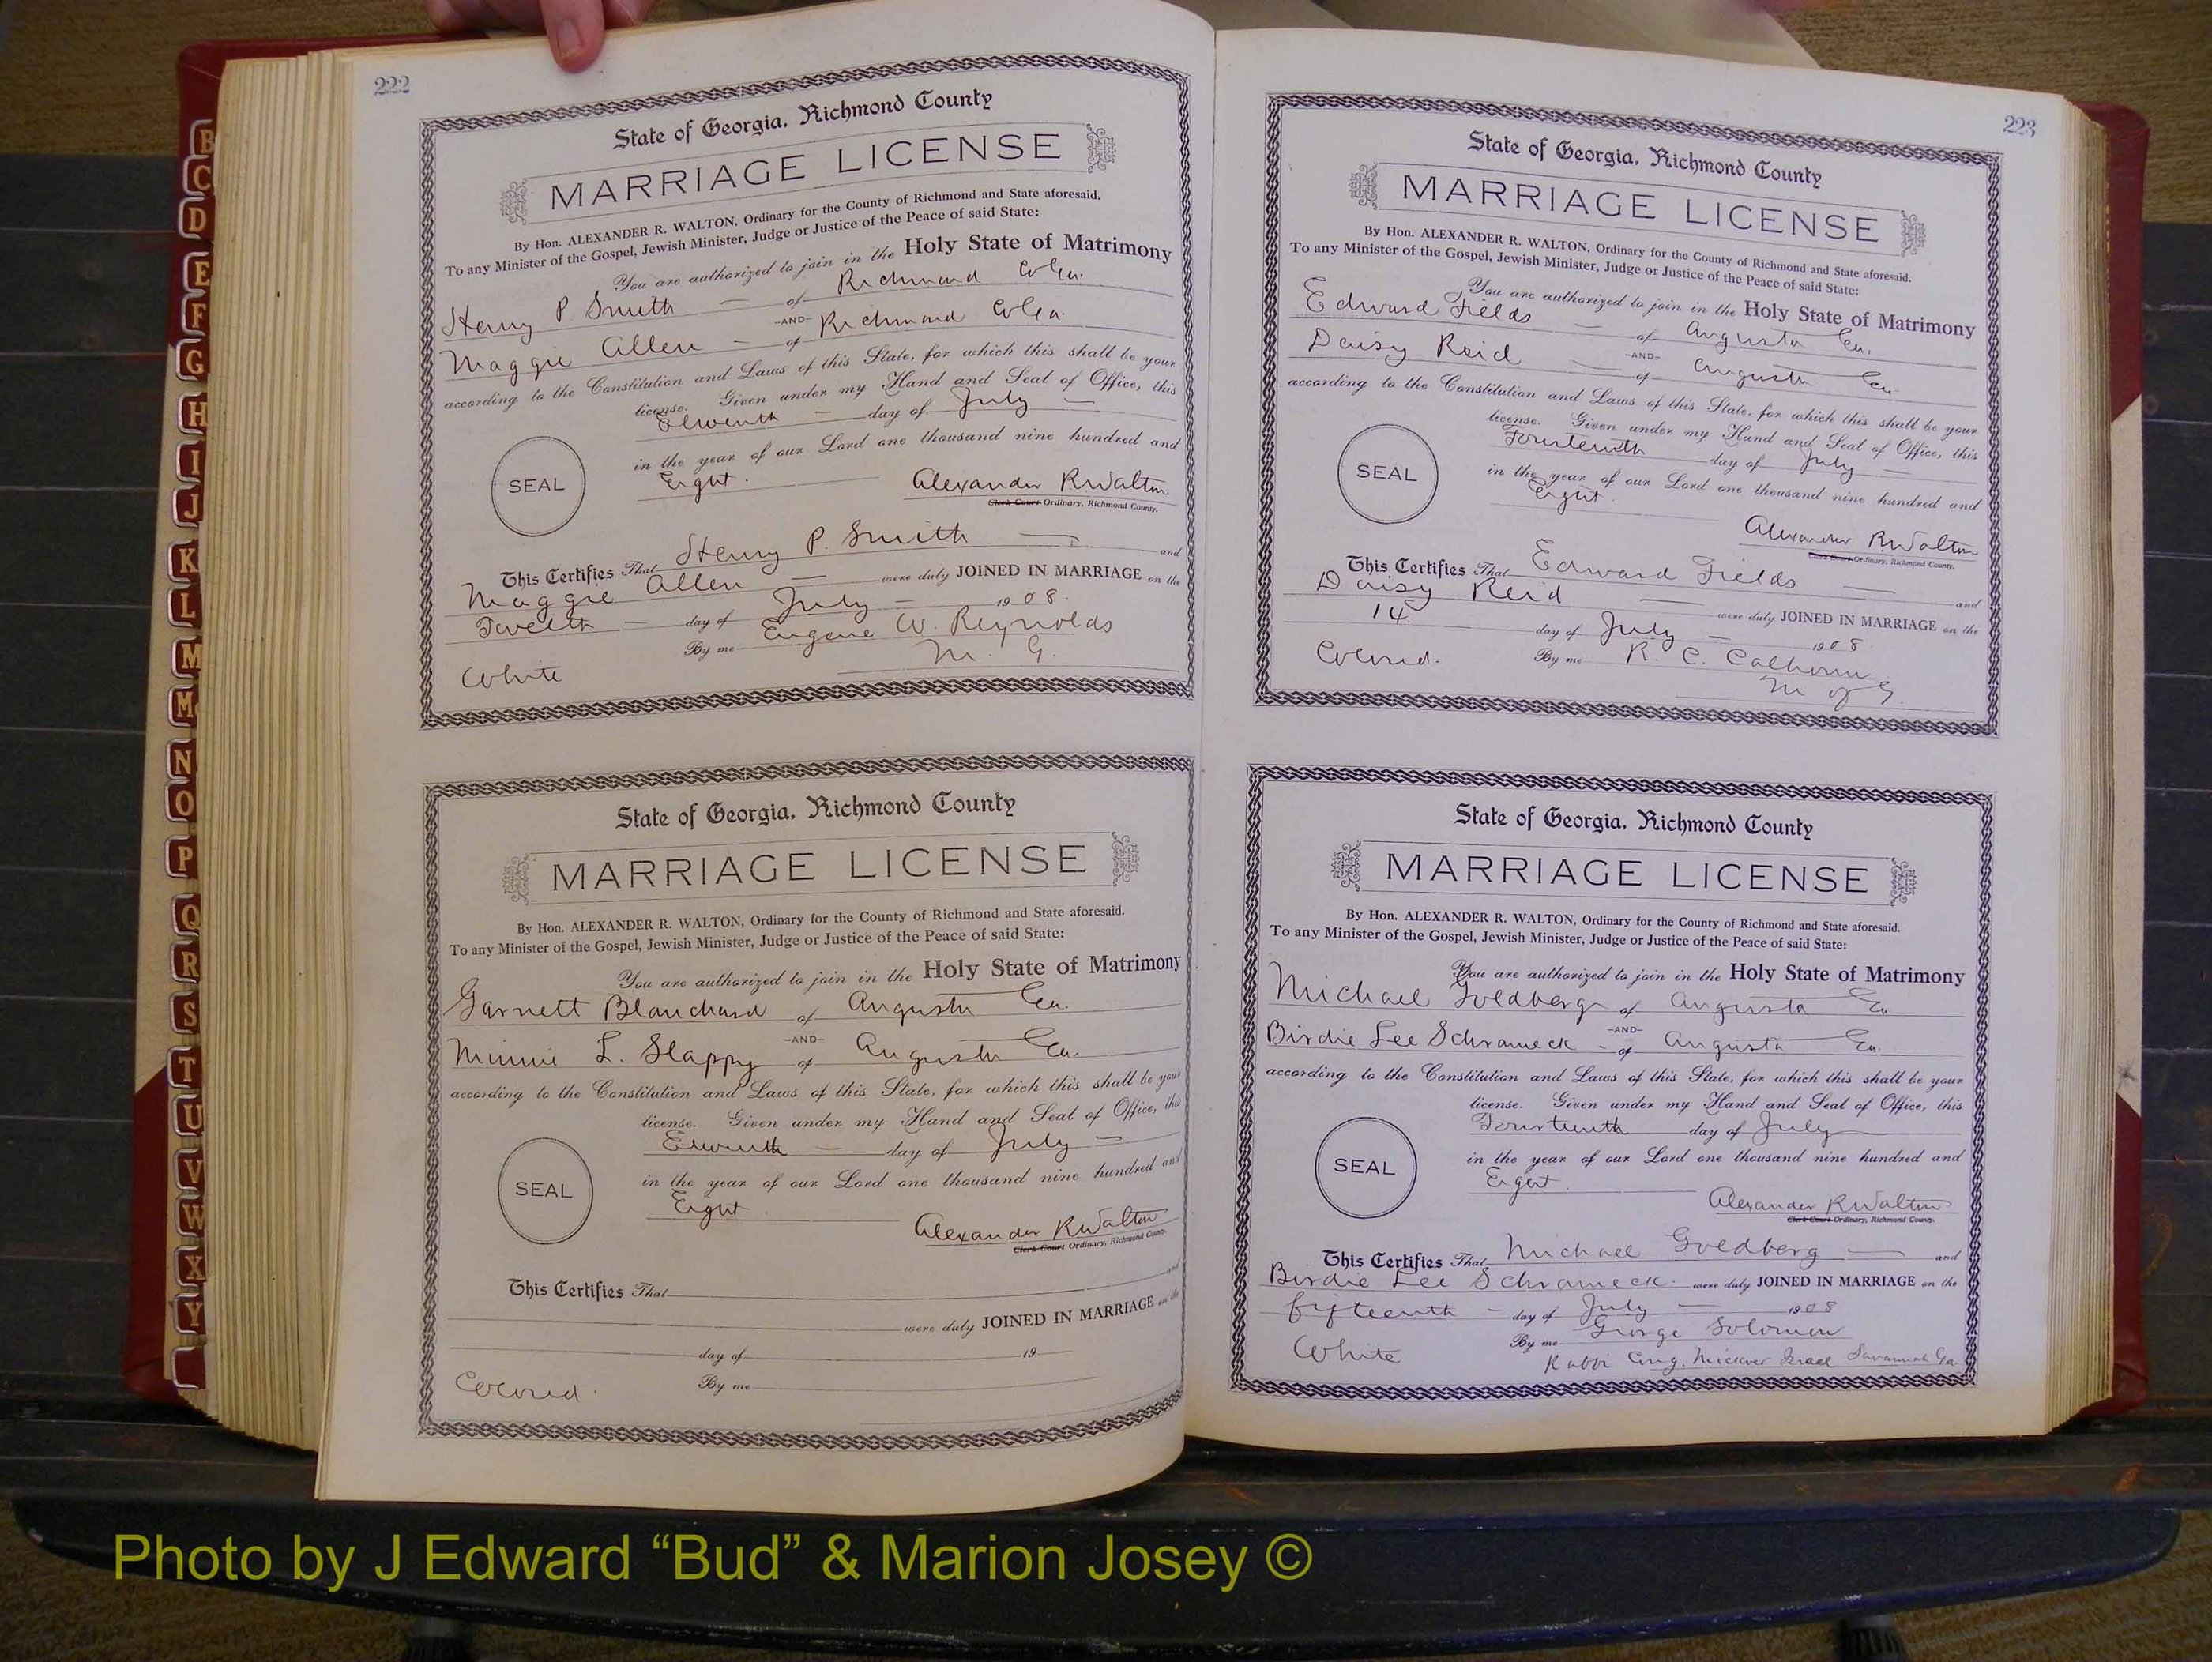 222
State of Georgia, Richmond County
MARRIAGE LICENSE
By Hon. ALEXANDER R. WALTON, Ordinary for the County of Richmond and State aforesaid.
To any Minister of the Gospel, Jewish Minister, Judge or Justice of the Peace of said State:
You are authorized to join in the Holy State of Matrimony
Henry P Smith — of Richmond Co Ga.
-AND-
Maggie Allen — of Richmond Co Ga.
according to the Constitution and Laws of this State, for which this shall be your
license. Given under my Hand and Seal of Office, this
Eleventh — day of July —
in the year of our Lord one thousand nine hundred and
Eight.
SEAL
Alexander R Walton
Clerk Court Ordinary, Richmond County.
This Certifies That Henry P. Smith — and
Maggie Allen — were duly JOINED IN MARRIAGE on the
Twelth — day of July — 1908.
By me Eugene W. Reynolds
M. G.
White
State of Georgia, Richmond County
MARRIAGE LICENSE
By Hon. ALEXANDER R. WALTON, Ordinary for the County of Richmond and State aforesaid.
To any Minister of the Gospel, Jewish Minister, Judge or Justice of the Peace of said State:
You are authorized to join in the Holy State of Matrimony
Garnett Blanchard of Augusta Ga.
-AND-
Minnie L. Slappy of Augusta Ga.
according to the Constitution and Laws of this State, for which this shall be your
license. Given under my Hand and Seal of Office, this
Eleventh — day of July —
in the year of our Lord one thousand nine hundred and
Eight
SEAL
Alexander R Walton
Clerk Court Ordinary, Richmond County.
This Certifies That and
were duly JOINED IN MARRIAGE on the
day of 19
Colored.
By me
223
State of Georgia, Richmond County
MARRIAGE LICENSE
By Hon. ALEXANDER R. WALTON, Ordinary for the County of Richmond and State aforesaid.
To any Minister of the Gospel, Jewish Minister, Judge or Justice of the Peace of said State:
You are authorized to join in the Holy State of Matrimony
Edward Fields — of Augusta Ga.
-AND-
Daisy Reid — of Augusta Ga.
according to the Constitution and Laws of this State, for which this shall be your
license. Given under my Hand and Seal of Office, this
Fourteenth day of July —
in the year of our Lord one thousand nine hundred and
Eight.
SEAL
Alexander R Walton
Clerk Court Ordinary, Richmond County.
This Certifies That Edward Fields — and
Daisy Reid — were duly JOINED IN MARRIAGE on the
14. day of July — 1908
Colored.
By me R. C. Calhoun
M of G.
State of Georgia, Richmond County
MARRIAGE LICENSE
By Hon. ALEXANDER R. WALTON, Ordinary for the County of Richmond and State aforesaid.
To any Minister of the Gospel, Jewish Minister, Judge or Justice of the Peace of said State:
You are authorized to join in the Holy State of Matrimony
Michael Goldberg of Augusta Ga
-AND-
Birdie Lee Schrameck - of Augusta Ga.
according to the Constitution and Laws of this State, for which this shall be your
license. Given under my Hand and Seal of Office, this
Fourteenth day of July
in the year of our Lord one thousand nine hundred and
Eight.
SEAL
Alexander R Walton
Clerk Court Ordinary, Richmond County.
This Certifies That Michael Goldberg — and
Birdie Lee Schrameck. were duly JOINED IN MARRIAGE on the
fifteenth — day of July — 1908
By me George Solomon
White
Rabbi Cong. Mickve Israel Savannah Ga.
B
C
D
E
F
G
H
I
J
K
L
M
Mc
N
O
P
Q
R
S
T
U
V
W
X
Y
Photo by J Edward “Bud” & Marion Josey ©